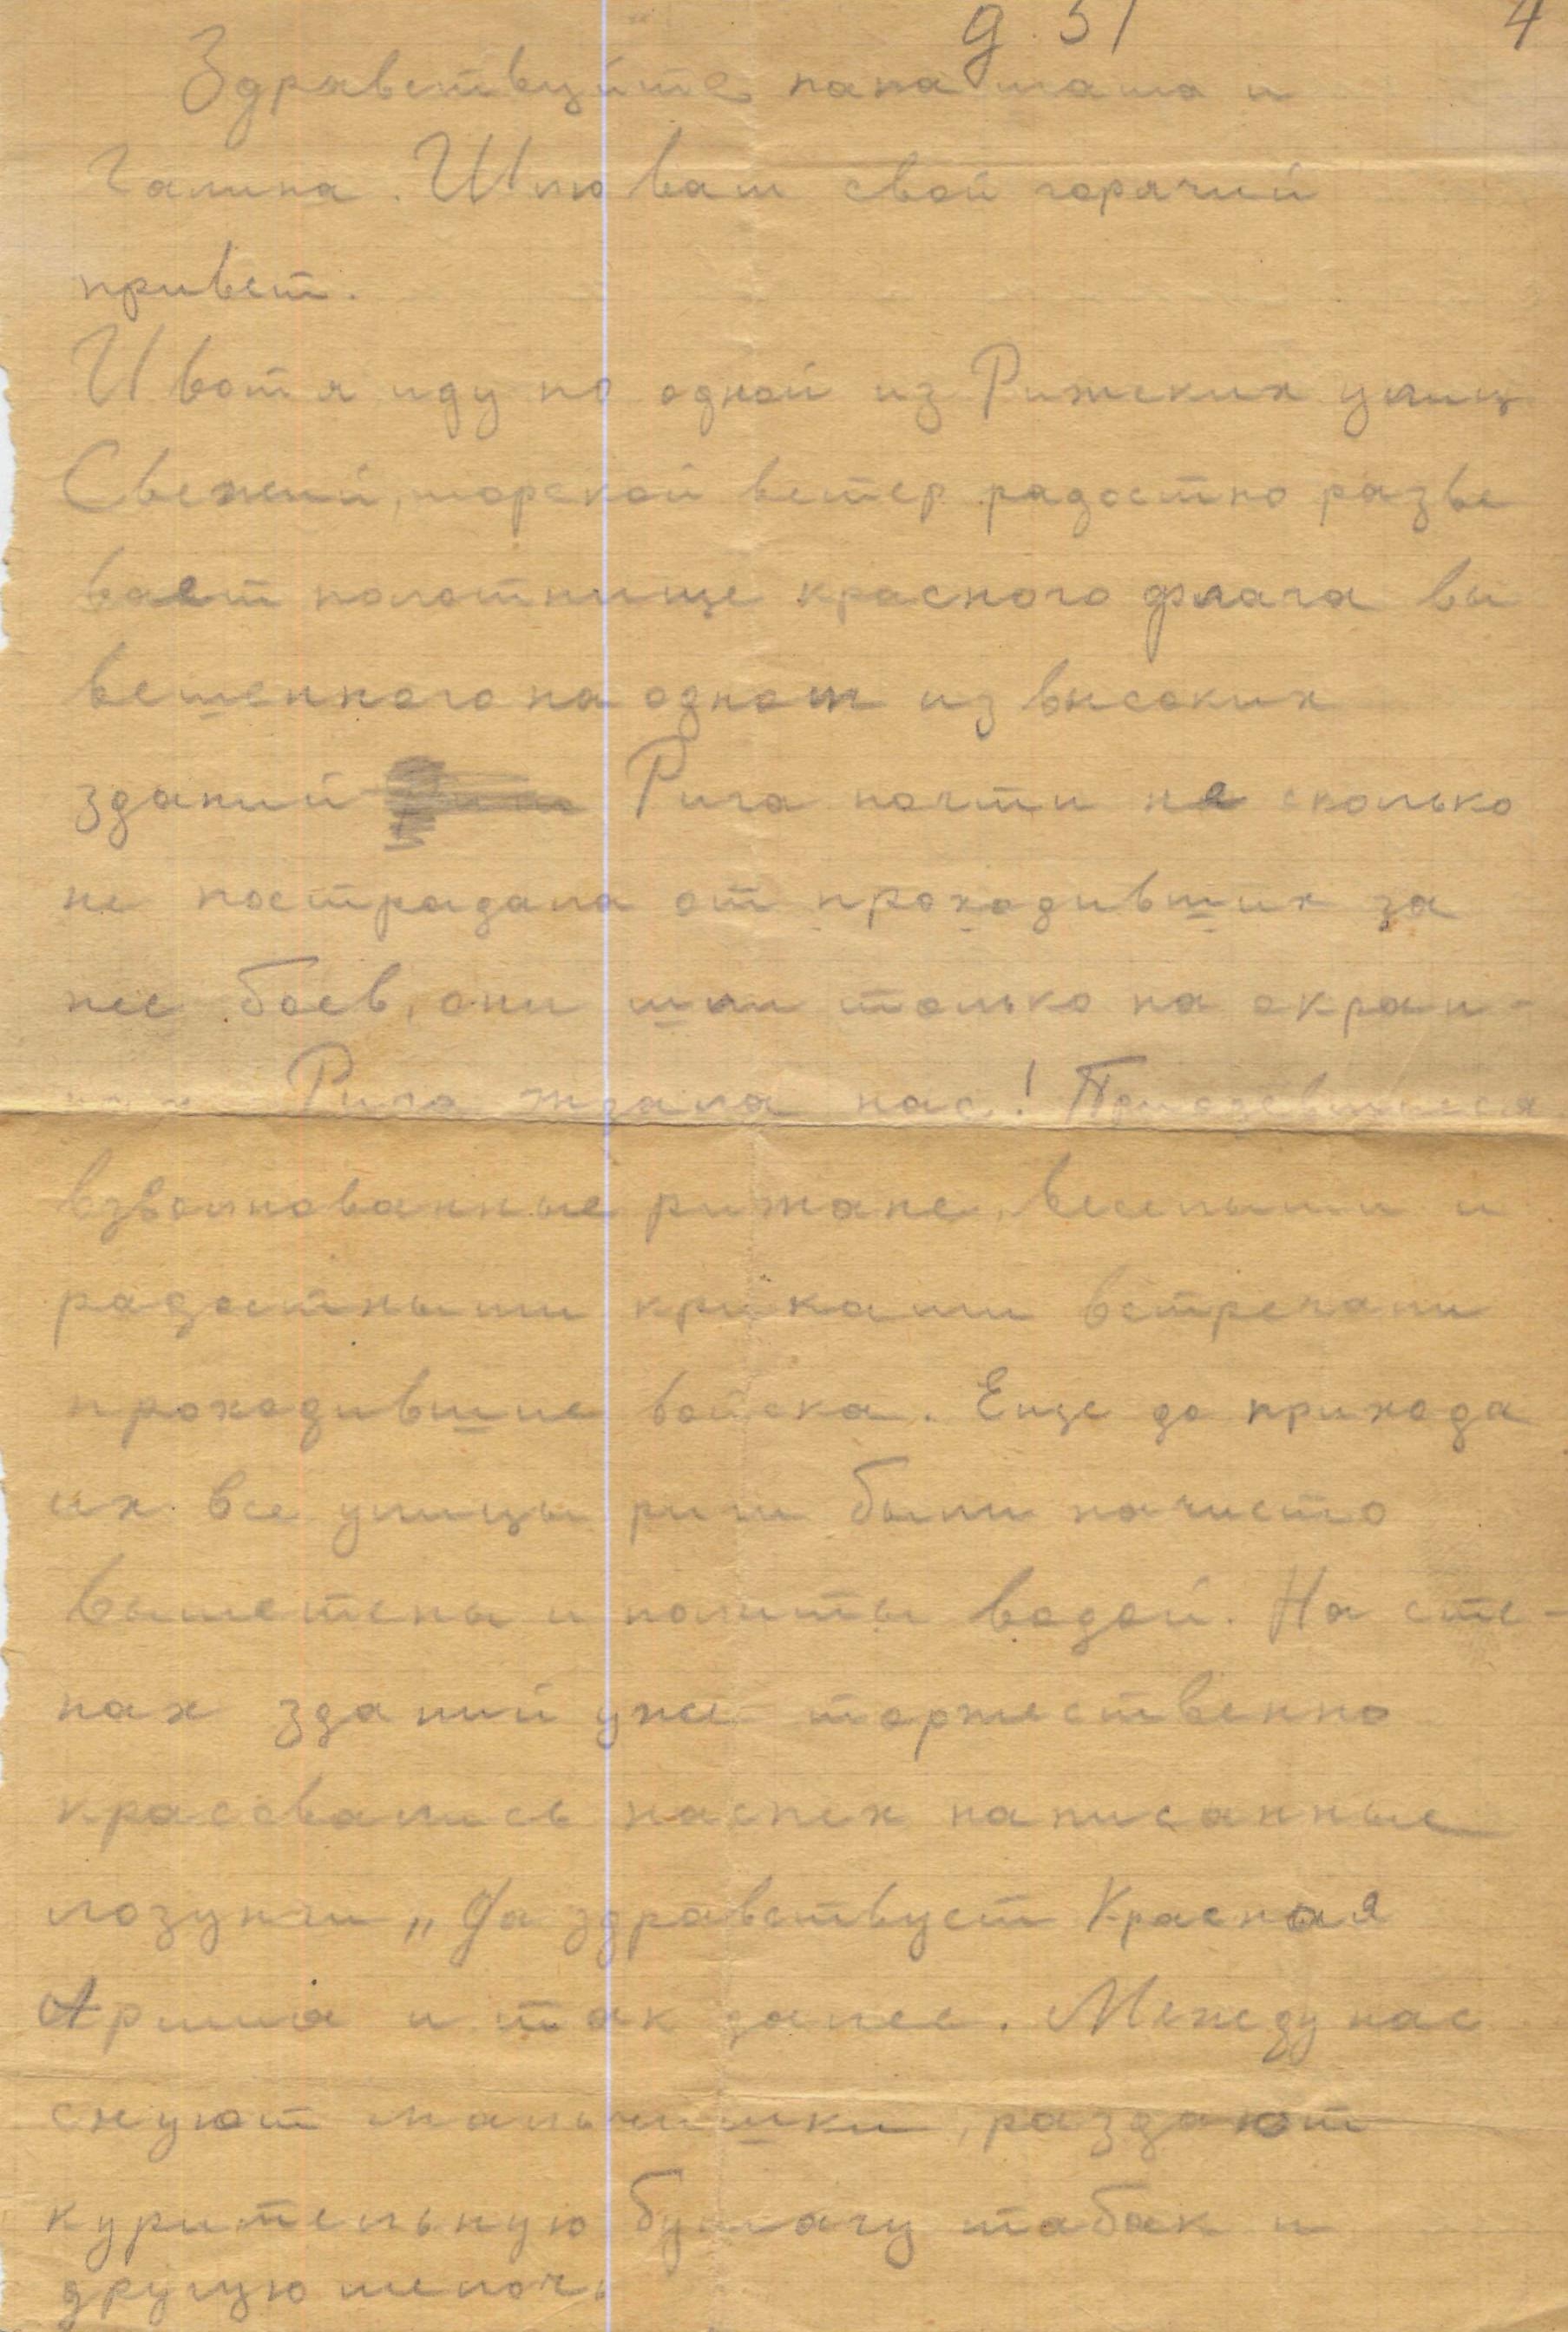 д. 31 4
Здравствуйте папа мама и
Галина. Шлю вам свой горячий
привет.
И вот я иду по одной из Рижских улиц
Свежий, морской ветер радостно разве
вает полотнище красного флага вы
вешенного на одном из высоких
зданий Рига почти не сколько
не пострадала от проходивших за
нее боев, они шли только на окраи-
нах. Рига ждала нас! Приодевшиеся
взволнованные рижане, веселыми и
радостными криками встречали
проходившие войска. Еще до прихода
их все улицы риги были начисто
выметены и политы водой. На сте-
нах зданий уже торжественно
красовались наспех написанные
лозунги „Да здравствует Красная
Армия и так далее. Между нас
снуют мальчишки, раздают
курительную бумагу табак и
другую мелочь